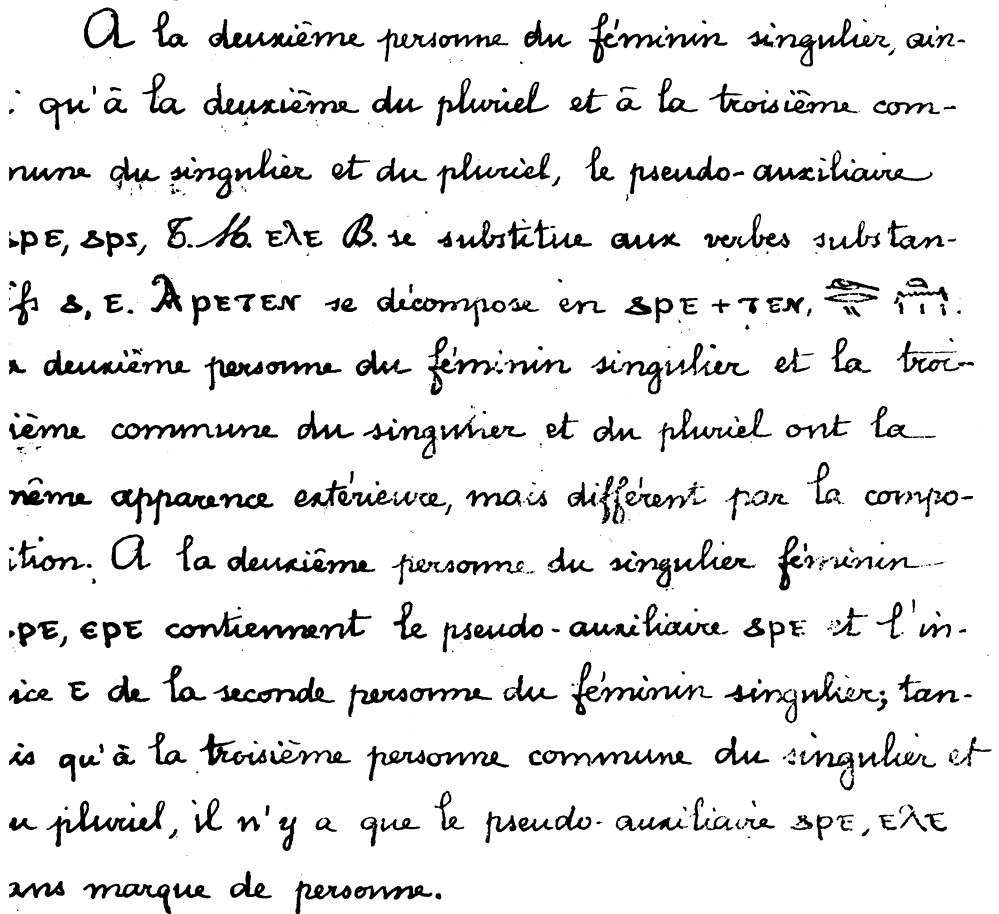 A la deuxième personne du féminin singulier, ain-
i qu'à la deuxième du pluriel et à la troisième com-
mune du singulier et du pluriel, le pseudo-auxiliaire
ⲁⲣⲉ, ⲁⲣⲥ, T. M. ⲉⲗⲉ B. se substitue aux verbes substan-
ifs ⲁ, ⲉ. Ⲁⲣⲉⲧⲉⲛ se décompose en ⲁⲣⲉ + ⲧⲉⲛ,
a deuxième personne du féminin singulier et la troi-
ième commune du singulier et du pluriel ont la
même apparence extérieure, mais différent par la compo-
ition. A la deuxième personne du singulier féminin
ⲁⲣⲉ, ⲉⲣⲉ contiennent le pseudo-auxiliaire ⲁⲣⲉ et l'in-
ice ⲉ de la seconde personne du féminin singulier; tan-
is qu'à la troisième personne commune du singulier et
u pluriel, il n'y a que le pseudo-auxiliaire ⲁⲣⲉ, ⲉⲗⲉ
ans marque de personne.